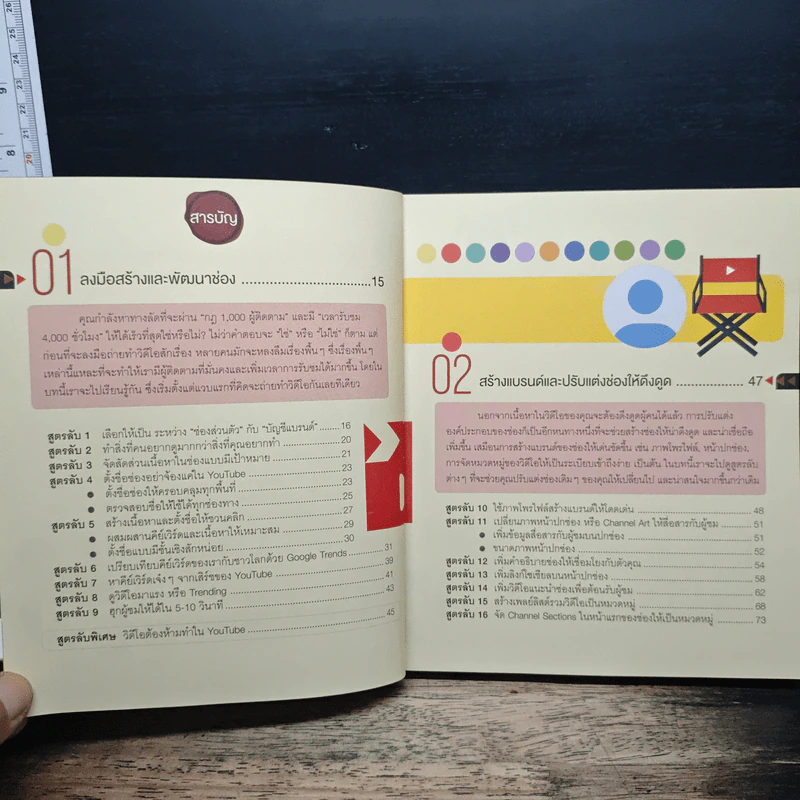 สารบัญ
01 ลงมือสร้างและพัฒนาช่อง ..................................15
คุณกำลังหาทางลัดที่จะผ่าน "กฎ 1,000 ผู้ติดตาม" และมี "เวลารับชม
4,000 ชั่วโมง" ให้ได้เร็วที่สุดใช่หรือไม่? ไม่ว่าคำตอบจะ "ใช่" หรือ "ไม่ใช่" ก็ตาม แต่
ก่อนที่จะลงมือถ่ายทำวิดีโอสักเรื่อง หลายคนมักจะหลงลืมเรื่องพื้นๆ ซึ่งเรื่องพื้นๆ
เหล่านี้แหละที่จะทำให้เรามีผู้ติดตามที่มั่นคงและเพิ่มเวลาการรับชมได้มากขึ้น โดยใน
บทนี้เราจะไปเรียนรู้กัน ซึ่งเริ่มตั้งแต่แวบแรกที่คิดจะถ่ายทำวิดีโอกันเลยทีเดียว
สูตรลับ 1 เลือกให้เป็น ระหว่าง "ช่องส่วนตัว" กับ "บัญชีแบรนด์" ........16
สูตรลับ 2 ทำสิ่งที่คนอยากดูมากกว่าสิ่งที่คุณอยากทำ ...................20
สูตรลับ 3 จัดสัดส่วนเนื้อหาในช่องแบบมีเป้าหมาย ......................21
สูตรลับ 4 ตั้งชื่อช่องอย่าจ้องแค่ใน YouTube ............................23
● ตั้งชื่อช่องให้ครอบคลุมทุกพื้นที่ ..............................23
● ตรวจสอบชื่อให้ใช้ได้ทุกช่องทาง .............................25
สูตรลับ 5 สร้างเนื้อหาและตั้งชื่อให้ชวนคลิก ............................27
● ผสมผสานคีย์เวิร์ดและเนื้อหาให้เหมาะสม ...................29
● ตั้งชื่อแบบมีชั้นเชิงสักหน่อย ..................................30
สูตรลับ 6 เปรียบเทียบคีย์เวิร์ดของเรากับชาวโลกด้วย Google Trends .........31
สูตรลับ 7 หาคีย์เวิร์ดเจ๋งๆ จากเสิร์ชของ YouTube ......................39
สูตรลับ 8 ดูวิดีโอมาแรง หรือ Trending ..................................41
สูตรลับ 9 ฮุกผู้ชมให้ได้ใน 5-10 วินาที ..................................43
สูตรลับพิเศษ วิดีโอต้องห้ามทำใน YouTube ..............................45
02 สร้างแบรนด์และปรับแต่งช่องให้ดึงดูด .................. 47
นอกจากเนื้อหาในวิดีโอของคุณจะต้องดึงดูดผู้คนได้แล้ว การปรับแต่ง
องค์ประกอบของช่องก็เป็นอีกหนทางหนึ่งที่จะช่วยสร้างช่องให้น่าดึงดูด และน่าเชื่อถือ
เพิ่มขึ้น เสมือนการสร้างแบรนด์ของช่องให้เด่นชัดขึ้น เช่น ภาพโพรไฟล์, หน้าปกช่อง,
การจัดหมวดหมู่ของวิดีโอให้เป็นระเบียบเข้าถึงง่าย เป็นต้น ในบทนี้เราจะไปดูสูตรลับ
ต่างๆ ที่จะช่วยคุณปรับแต่งช่องเดิมๆ ของคุณให้เปลี่ยนไป และน่าสนใจมากขึ้นกว่าเดิม
สูตรลับ 10 ใช้ภาพโพรไฟล์สร้างแบรนด์ให้โดดเด่น ......................48
สูตรลับ 11 เปลี่ยนภาพหน้าปกช่อง หรือ Channel Art ให้สื่อสารกับผู้ชม ......51
● เพิ่มข้อมูลสื่อสารกับผู้ชมบนปกช่อง ..........................51
● ขนาดภาพหน้าปกช่อง ........................................52
สูตรลับ 12 เพิ่มคำอธิบายช่องให้เชื่อมโยงกับตัวคุณ .....................54
สูตรลับ 13 เพิ่มลิงก์โซเชียลบนหน้าปกช่อง ..............................58
สูตรลับ 14 เพิ่มวิดีโอแนะนำช่องเพื่อต้อนรับผู้ชม ........................62
สูตรลับ 15 สร้างเพลย์ลิสต์รวมวิดีโอเป็นหมวดหมู่ ........................68
สูตรลับ 16 จัด Channel Sections ในหน้าแรกของช่องให้เป็นหมวดหมู่ ........73